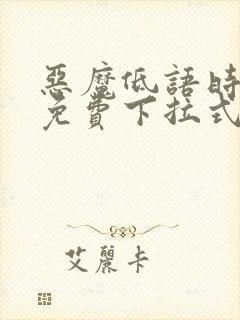 惡魔低語時
免費下拉式
艾麗卡